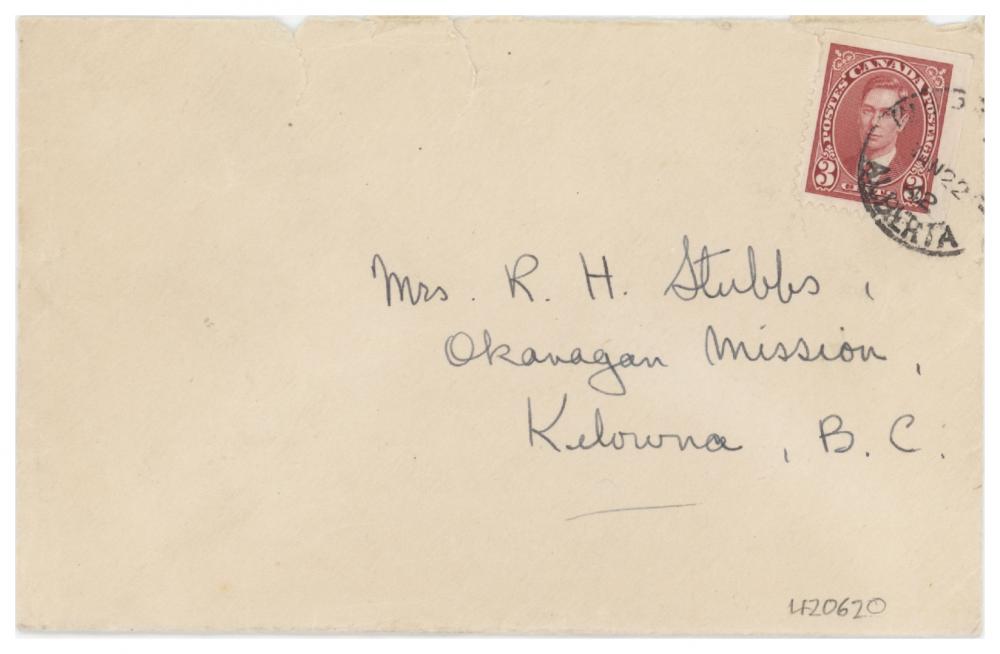 POSTES CANADA POSTAGE
3 CENTS 3
22
42
ALBERTA
Mrs. R. H. Stubbs,
Okanagan Mission,
Kelowna, B.C.
420620